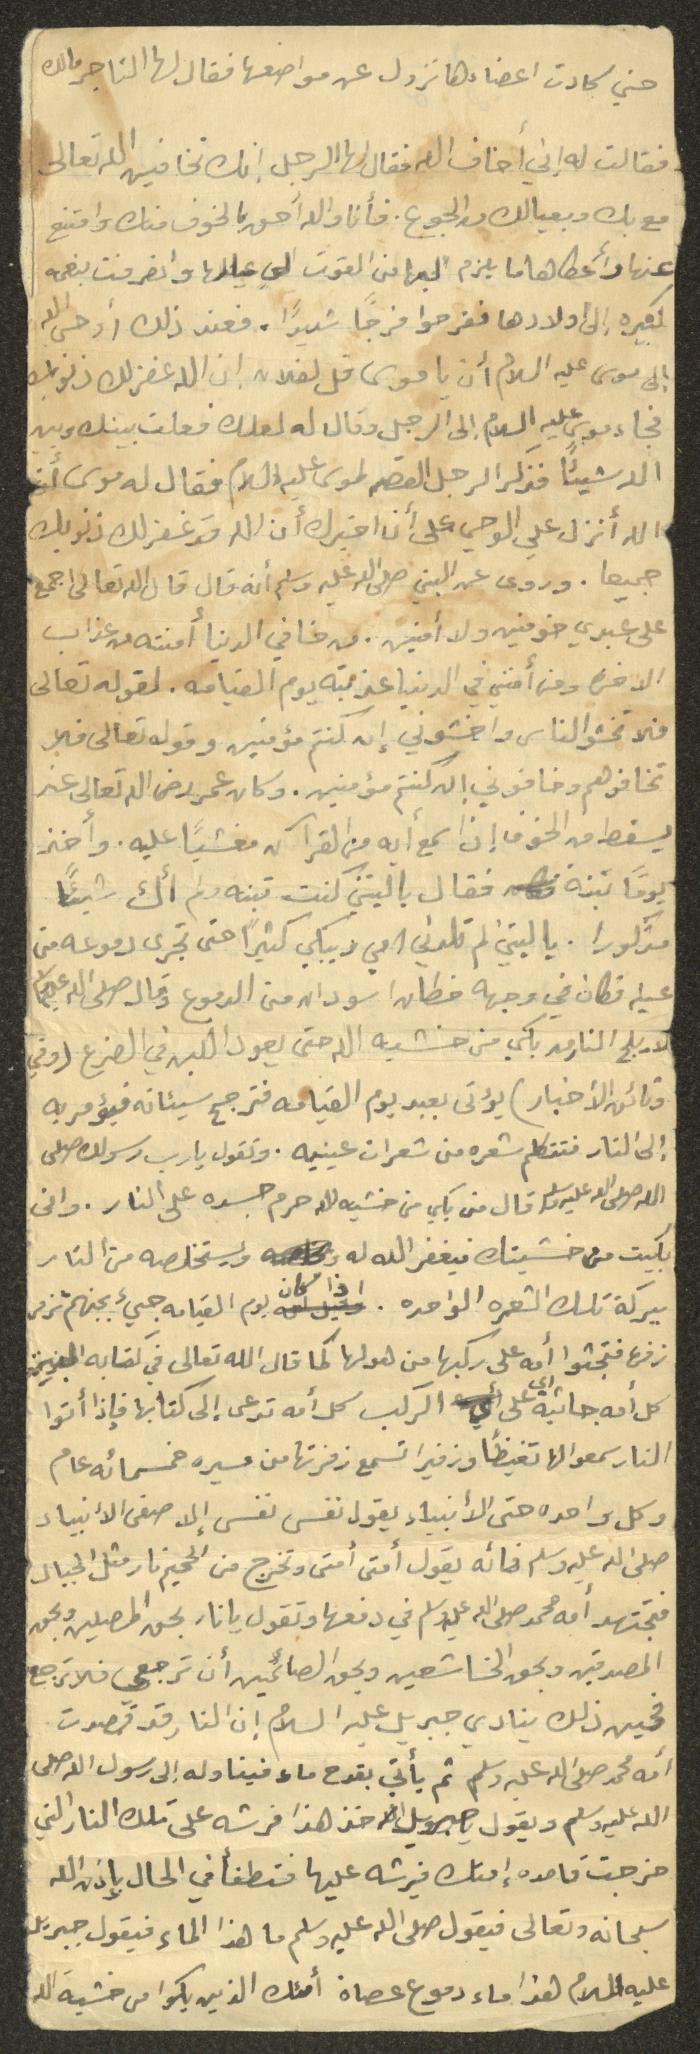 حتي كادت اعضاءها تزول عن مواضعها فقال لها التاجر مالك
فقالت له إني أخاف الله فقال لها الرجل إنك تخافين الله تعالى
مع بك وبعيالك من الجوع . فأنا والله أحق بالخوف منك وامتنع
عنها وأعطاها ما يلزم لها من القوت الي عيالها وانصرفت بنعمه
كبيره إلى أولادها ففرحوا فرحًا شديدًا . فعند ذلك أوحى الله
إلى موسى عليه السلام أن يا موسى قل لفلان إن الله غفر لك ذنوبك
فجاء موسى عليه السلام إلى الرجل وقال له لعلك فعلت بينك وبين
الله شيئًا فذكر الرجل القصه لموسى عليه السلام فقال له موسى أن
الله أنزل علي الوحي على أن اخبرك أن الله قد غفر لك ذنوبك
جميعا . وروى عن النبي صلى الله عليه وسلم أنه قال قال الله تعالى اجمع
على عبدي خوفين ولا أمنين . من خافني الدنيا أمنته من عذاب
الاخره ومن أمنني في الدنيا عذبته يوم القيامه . لقوله تعالى
فلا تخشو الناس واخشوني إن كنتم مؤمنين وقوله تعالى فلا
تخافوهم وخافوني إن كنتم مؤمنين . وكان عمر رضى الله تعالى عنه
يسقط من الخوف إذا سمع أيه من القرآن مغشيًا عليه . وأخذ
يومًا تبنة فقال ياليتني كنت تبنه ولم أك شيئًا
مذكورا . ياليتني لم تلدني امي ويبكي كثيرًا حتى تجرى دموعه من
عينه فكان في وجهه خطان اسودان من الدموع وقال صلى الله عليه وسلم
لا يلج النار من بكي من خشيه الله حتى يعود اللبن في الضرع (وفي
دقائق الأخبار) يؤتى بعبد يوم القيامه فترجح سيئاته فيؤمر به
إلى النار فتتكلم شعره من شعرات عينيه . وتقول يارب رسولك صلى
الله صلى الله عليه وسلم قال من بكي من خشيه الله حرم جسده على النار . وانى
بكيت من خشيتك فيغفر الله له ويستخلصه من النار
ببركة تلك الشعره الواحده . اذا كان يوم القيامه جيئ بجهنم تزفر
زفره فتجثوا أمه على ركبها من هولها كما قال الله تعالى في كتابه العزيز
كل أمه جاثية اى على الركب كل أمه تدعى إلى كتابها فإذا أتوا
النار سمعوا لها تغيظًا وزفيرا تسمع زفرتها من مسيره خمسمائه عام
وكل واحده حتى الأنبياء يقول نفسى نفسى إلا صفى الأنبياء
صلى الله عليه وسلم فانه يقول أمتى أمتى وتخرج من الجحيم نار مثل الجبال
فتجتهد أمه محمد صلى الله عليه وسلم في دفعها وتقول يا نار بحق المصلين وبحق
المصدقين وبحق الخاشعين وبحق الصائمين أن ترجعي فلا ترجع
فحين ذلك ينادي جبريل عليه السلام إن النار قد قصدت
أمه محمد صلى الله عليه وسلم ثم يأتي بقدح ماء فيناوله إلى رسول الله صلى
الله عليه وسلم ويقول خذ هذا فرشه على تلك النار التي
خرجت قاصده إمتك فيرشه عليها فتنطفأ في الحال بإذن الله
سبحانه وتعالى فيقول صلى الله عليه وسلم ما هذا الماء فيقول جبريل
عليه السلام هذا ماء دموع عصاة أمتك الذين بكوا من خشية الله